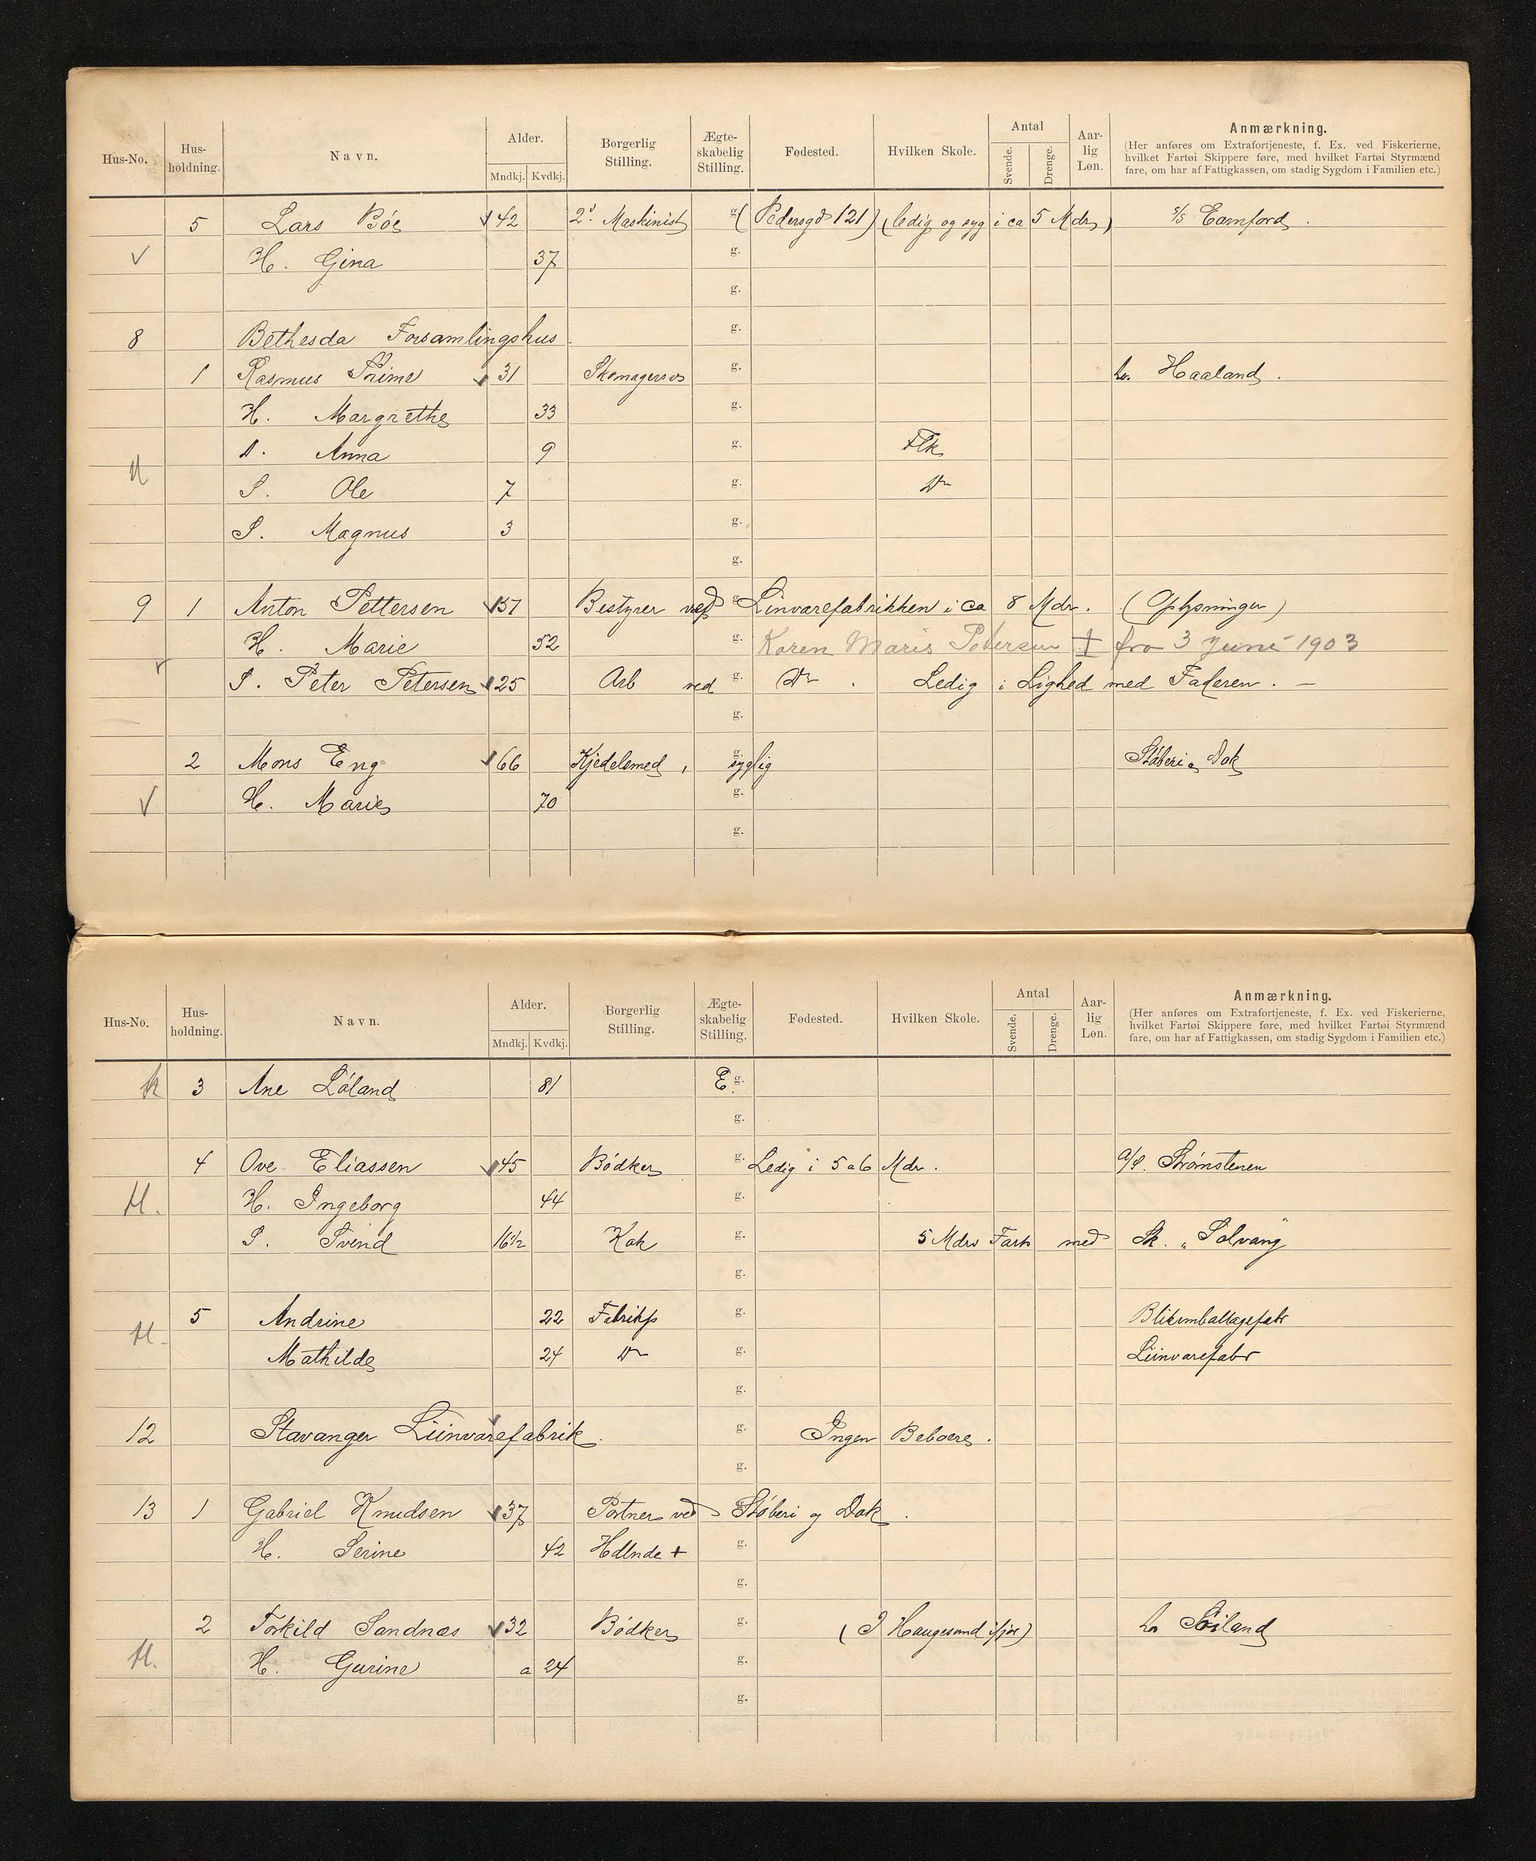 Hus-No. Hus-holdning. Navn. Alder. Mndkj. Kvdkj. Borgerlig Stilling. Ægte-skabelig Stilling. Fødested. Hvilken Skole. Antal Svende. Drenge. Aar-lig Løn. Anmærkning.
(Her anføres om Extrafortjeneste, f. Ex. ved Fiskerierne, hvilket Fartøi Skippere føre, med hvilket Fartøi Styrmænd fare, om har af Fattigkassen, om stadig Sygdom i Familien etc.)
5 Lars Bøe 42 2d Maskinist g. (Pedersgd 121) (ledig og syg i ca 5 Mdr) s/s Eamford.
H. Gina 37 g.
g.
8 Bethesda Forsamlingshus. g.
1 Rasmus Prime 31 Skomagersv g. hr. Haaland.
H. Margrethe 33 g.
D. Anna 9 g. Flk
S. Ole 7 g. Do
S. Magnus 3 g.
g.
9 1 Anton Pettersen 57 Bestyrer ved g. Linvarefabrikken i ca 8 Mdr. (Oplysninger)
H. Marie 52 g. Karen Marie Petersen † fra 3 Juni 1903
S. Peter Petersen 25 Arb ved g. Do. Ledig i Lighed med Faderen. —
g.
2 Mons Eng 66 Kjedelsmed, g. syglig Støberi & Dok
H. Marie 70 g.
g.
Hus-No. Hus-holdning. Navn. Alder. Mndkj. Kvdkj. Borgerlig Stilling. Ægte-skabelig Stilling. Fødested. Hvilken Skole. Antal Svende. Drenge. Aar-lig Løn. Anmærkning.
(Her anføres om Extrafortjeneste, f. Ex. ved Fiskerierne, hvilket Fartøi Skippere føre, med hvilket Fartøi Styrmænd fare, om har af Fattigkassen, om stadig Sygdom i Familien etc.)
3 Ane Løland 81 E. g.
g.
4 Ove Eliassen 45 Bødker g. Ledig i 5 a 6 Mdr. a/s. Strømstenen
H. Ingeborg 44 g.
S. Svend 16 1/2 Kok g. 5 Mdrs Fart med Sk. "Solvang"
g.
5 Andrine 22 Fabrikp g. Blikemballagefabr
Mathilde 24 Do g. Liinvarefabr
g.
12 Stavanger Liinvarefabrik. g. Ingen Beboere.
g.
13 1 Gabriel Knudsen 37 Portner ved g. Støberi og Dok.
H. Serine 42 Hdlnde + g.
g.
2 Torkild Sandnæs 32 Bødker g. (I Haugesund ifjor) hr Soiland
H. Gurine a 24 g.
g.